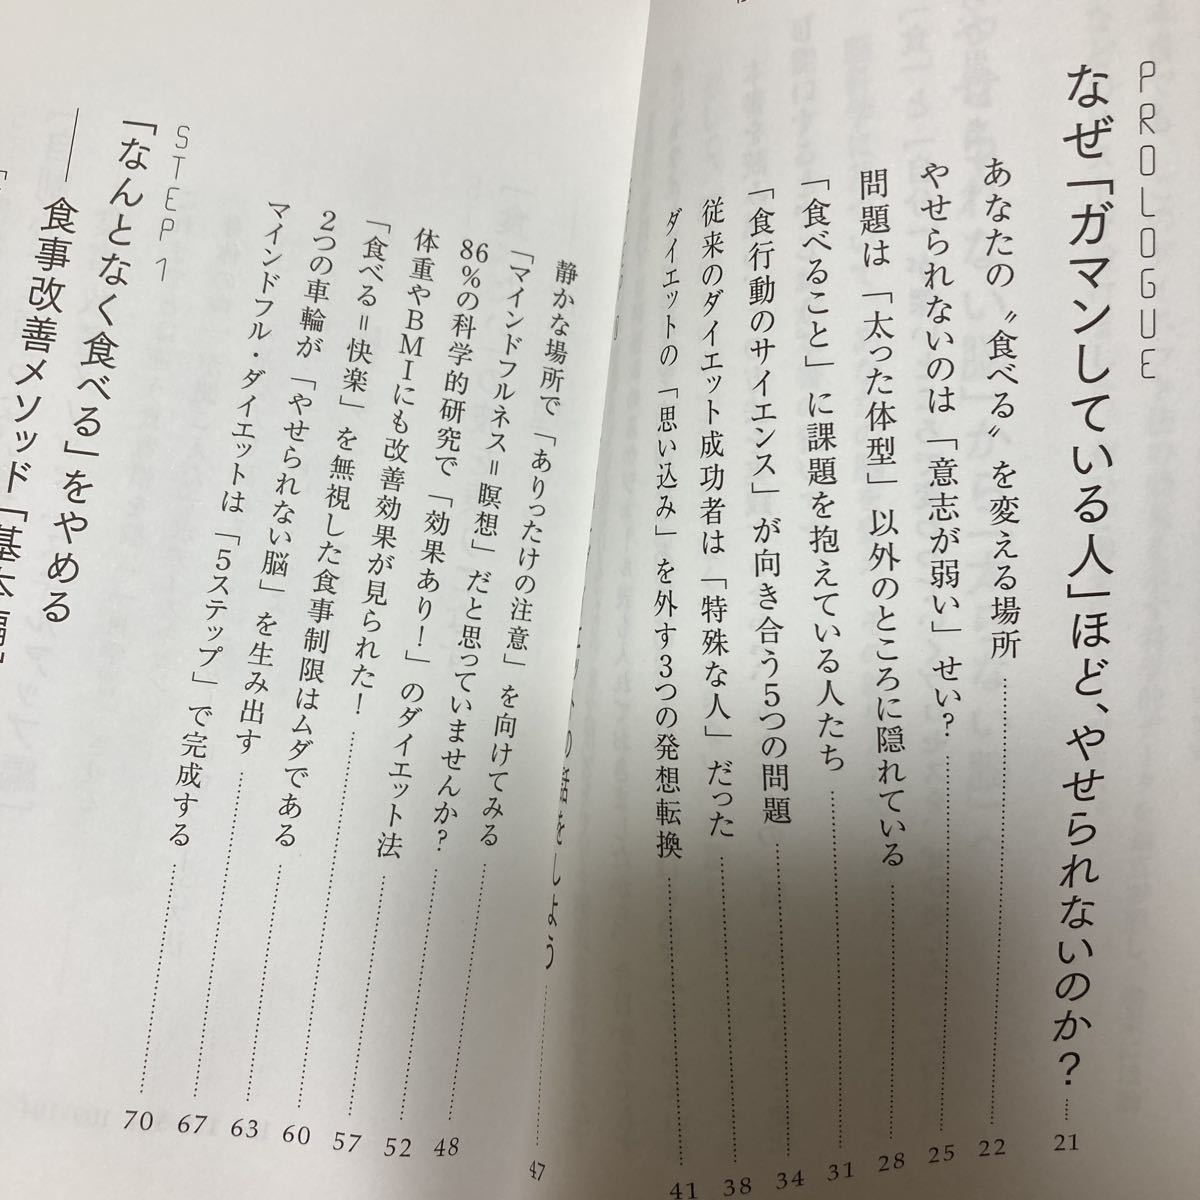 PROLOGUE
なぜ「ガマンしている人」ほど、やせられないのか？ …… 21
あなたの〝食べる〟を変える場所 …… 22
やせられないのは「意志が弱い」せい？ …… 25
問題は「太った体型」以外のところに隠れている …… 28
「食べること」に課題を抱えている人たち …… 31
「食行動のサイエンス」が向き合う5つの問題 …… 34
従来のダイエット成功者は「特殊な人」だった …… 38
ダイエットの「思い込み」を外す3つの発想転換 …… 41
の話をしよう …… 47
静かな場所で「ありったけの注意」を向けてみる …… 48
「マインドフルネス＝瞑想」だと思っていませんか？ …… 52
86%の科学的研究で「効果あり！」のダイエット法 …… 57
体重やBMIにも改善効果が見られた！ …… 60
「食べる＝快楽」を無視した食事制限はムダである …… 63
2つの車輪が「やせられない脳」を生み出す …… 67
マインドフル・ダイエットは「5ステップ」で完成する …… 70
STEP 1
「なんとなく食べる」をやめる
── 食事改善メソッド「基本編」